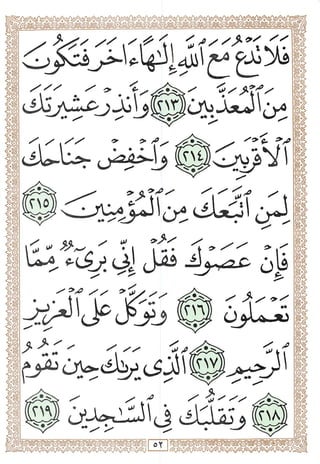 فَلَا تَدْعُ مَعَ ٱللَّهِ إِلَٰهًا ءَاخَرَ فَتَكُونَ
مِنَ ٱلْمُعَذَّبِينَ ٢١٣ وَأَنذِرْ عَشِيرَتَكَ
ٱلْأَقْرَبِينَ ٢١٤ وَٱخْفِضْ جَنَاحَكَ
لِمَنِ ٱتَّبَعَكَ مِنَ ٱلْمُؤْمِنِينَ ٢١٥
فَإِنْ عَصَوْكَ فَقُلْ إِنِّي بَرِىٓءٌ مِّمَّا
تَعْمَلُونَ ٢١٦ وَتَوَكَّلْ عَلَى ٱلْعَزِيزِ
ٱلرَّحِيمِ ٢١٧ ٱلَّذِى يَرَىٰكَ حِينَ تَقُومُ
٢١٨ وَتَقَلُّبَكَ فِى ٱلسَّٰجِدِينَ ٢١٩
٥٢